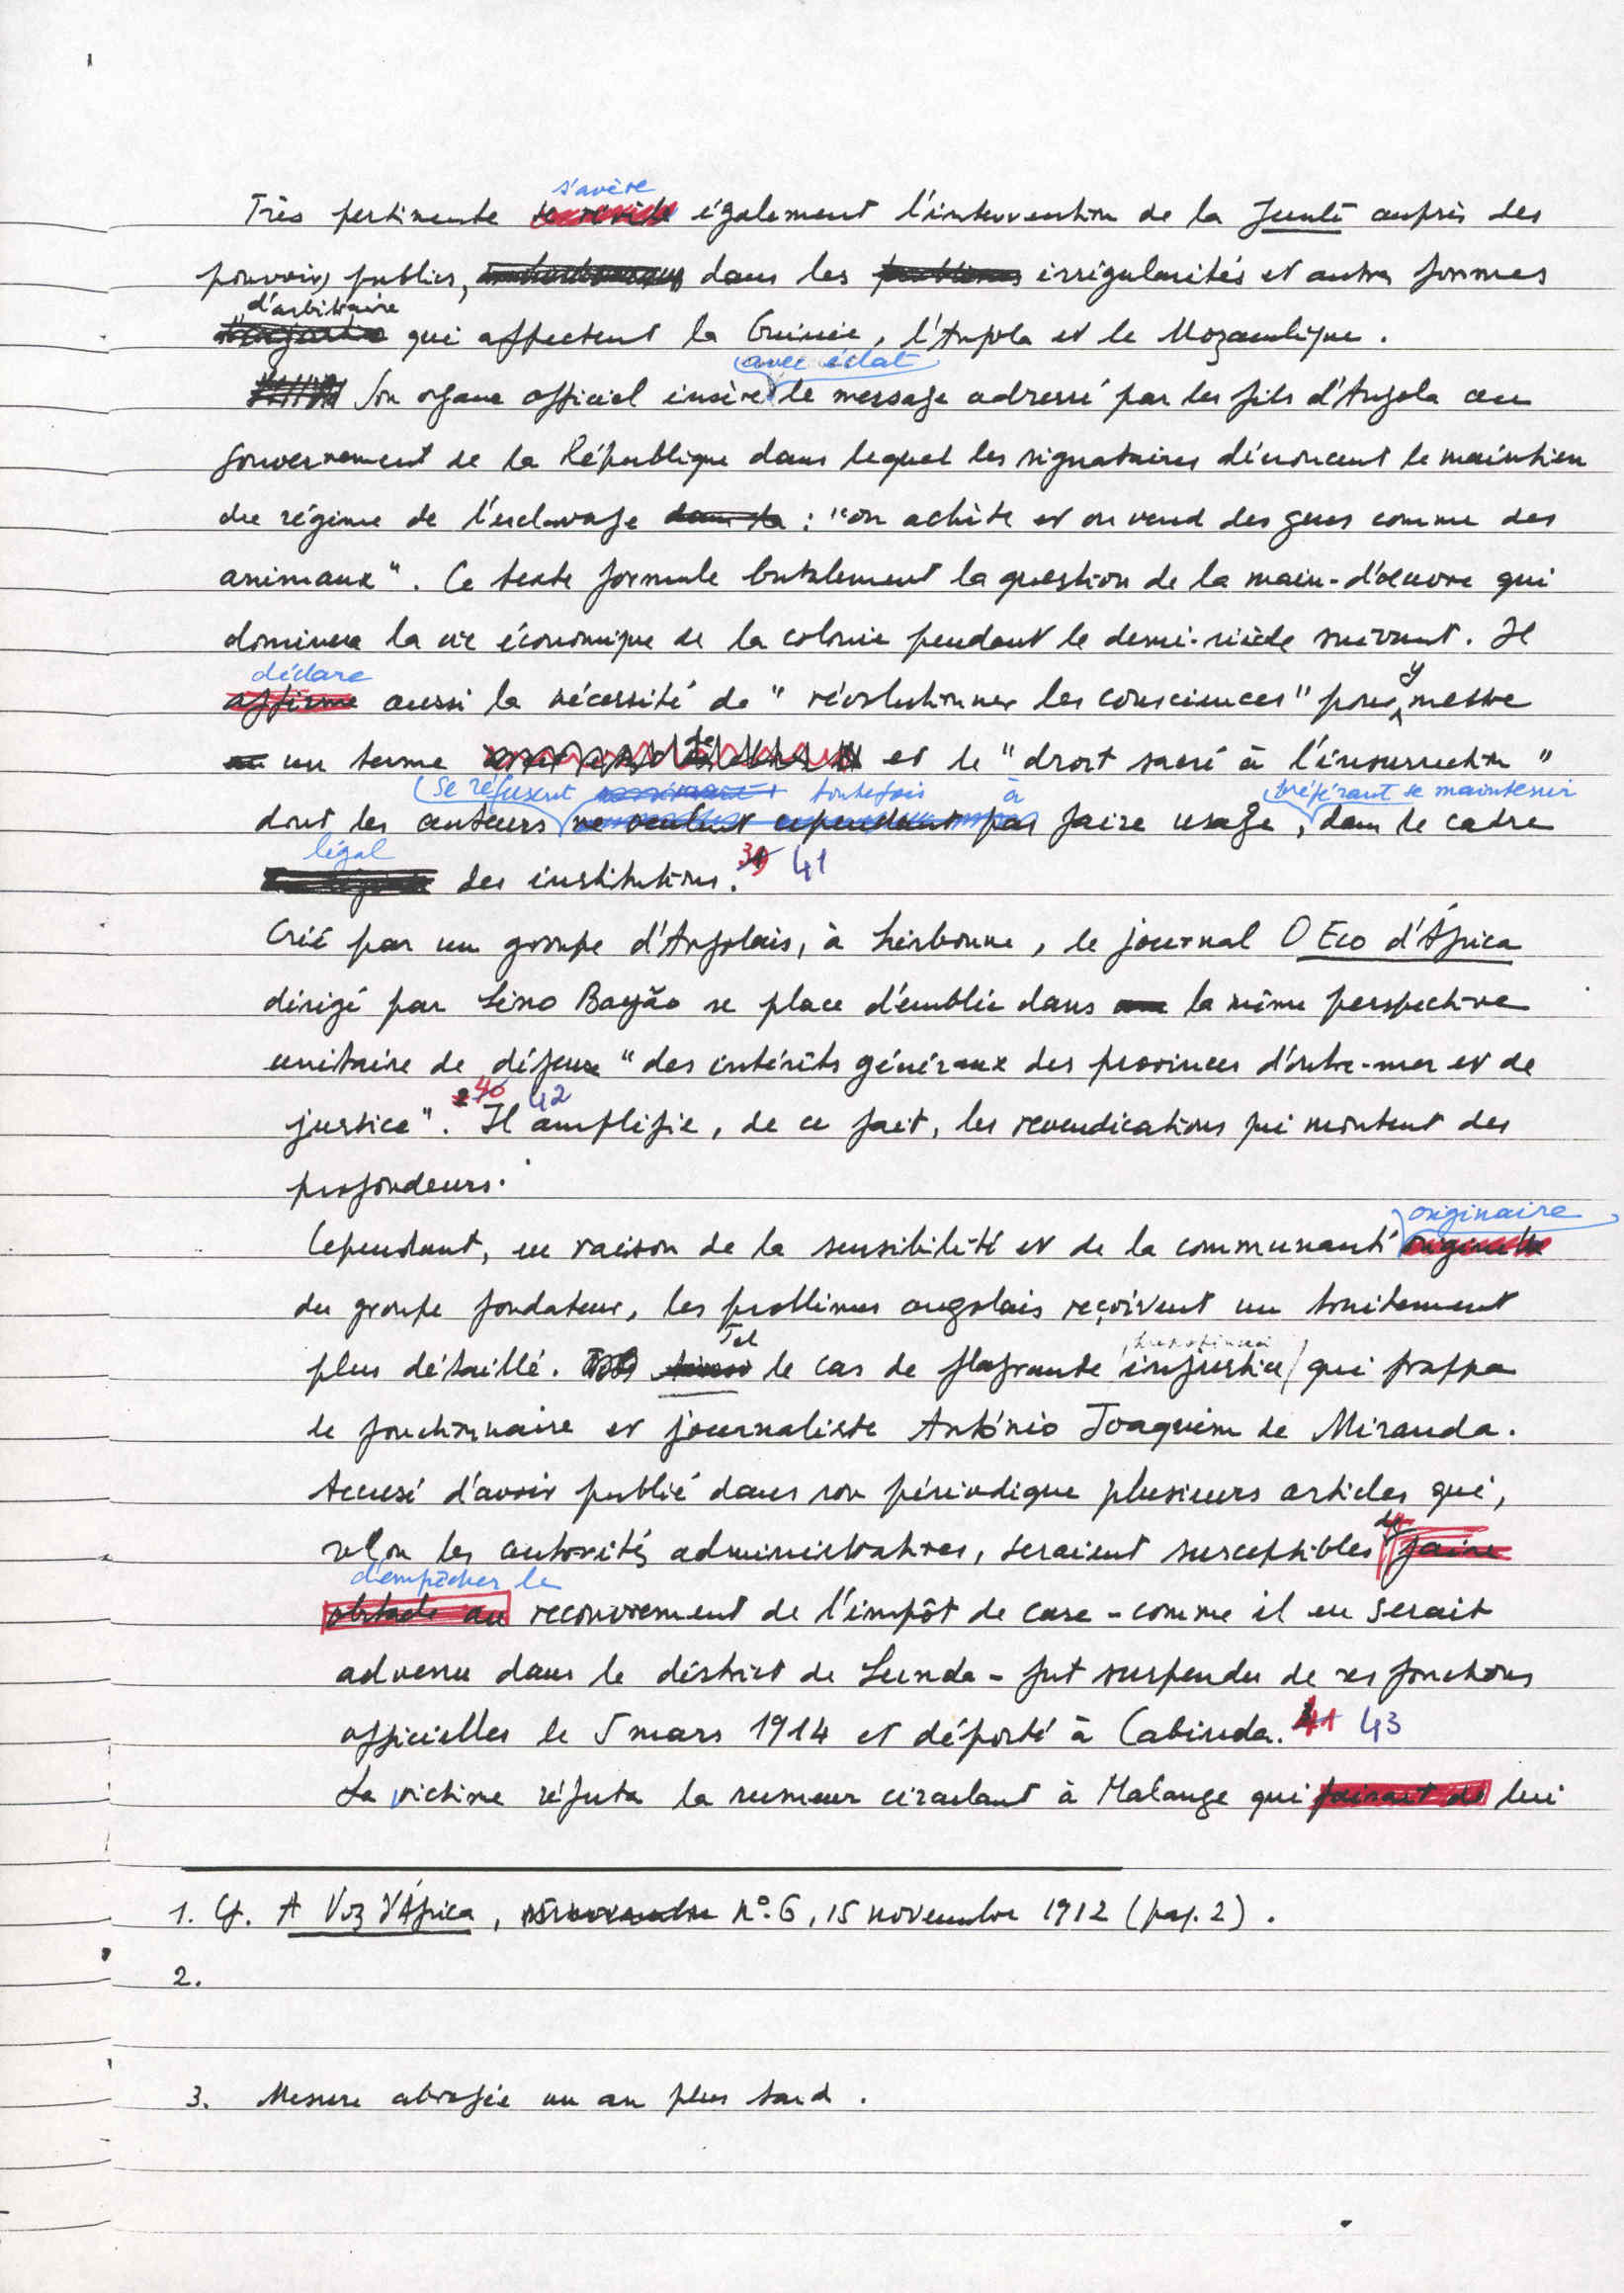 Très pertinente s'avère également l'intervention de la Junte auprès des
pouvoirs publics, dans les irrégularités et autres formes
d'arbitraire qui affectent la Guinée, l'Angola et le Mozambique.
Son organe officiel insère avec éclat le message adressé par les fils d'Angola au
Gouvernement de la République dans lequel les signataires dénoncent le maintien
du régime de l'esclavage dans la : "on achète et on vend des gens comme des
animaux". Ce texte formule brutalement la question de la main-d'œuvre qui
dominera la vie économique de la colonie pendant le demi-siècle suivant. Il
affirme déclare aussi la nécessité de "révolutionner les consciences" pour y mettre
un terme et le "droit sacré à l'insurrection"
dont les auteurs se refusent toutefois à ne veulent cependant pas faire usage, préférant se maintenir dans le cadre
légal des institutions. 41
Créé par un groupe d'Angolais, à Lisbonne, le journal O Eco d'África
dirigé par Lino Bayão se place d'emblée dans la même perspective
unitaire de défense "des intérêts généraux des provinces d'outre-mer et de
justice". 40 42 Il amplifie, de ce fait, les revendications qui montent des
profondeurs.
Cependant, en raison de la sensibilité et de la communauté originaire
du groupe fondateur, les problèmes angolais reçoivent un traitement
plus détaillé. Tel le cas de flagrante injustice qui frappa
le fonctionnaire et journaliste António Joaquim de Miranda.
Accusé d'avoir publié dans son périodique plusieurs articles qui,
selon les autorités administratives, seraient susceptibles de faire
obstacle au d'empêcher le recouvrement de l'impôt de case - comme il en serait
advenu dans le district de Lunda - fut suspendu de ses fonctions
officielles le 5 mars 1914 et déporté à Cabinda. 41 43
La victime réfuta la rumeur circulant à Malange qui faisait de lui
1. Cf. A Voz d'África, 15 novembre nº. 6, 15 novembre 1912 (pag. 2).
2.
3. Mesure abrogée un an plus tard.